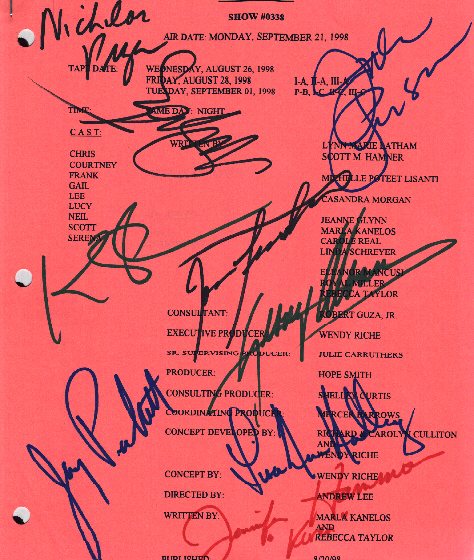 SHOW #0338
AIR DATE: MONDAY, SEPTEMBER 21, 1998
Nicholas
TAPE DATE: WEDNESDAY, AUGUST 26, 1998
FRIDAY, AUGUST 28, 1998 I-A, II-A, III-A
TUESDAY, SEPTEMBER 01, 1998
TIME: SAME DAY: NIGHT
CAST: WRITTEN BY: LYNN MARIE LATHAM
SCOTT M HAMNER
CHRIS
COURTNEY
FRANK MICHELLE POTEET LISANTI
GAIL
LEE CASANDRA MORGAN
LUCY
NEIL JEANNE GLYNN
SCOTT MARLA KANELOS
SERENA CAROLE REAL
LINDA SCHREYER
ELEANOR MANCUSI
ROYAL MILLER
REBECCA TAYLOR
CONSULTANT: ROBERT GUZA, JR
EXECUTIVE PRODUCER: WENDY RICHE
SR. SUPERVISING PRODUCER: JULIE CARRUTHERS
PRODUCER: HOPE SMITH
CONSULTING PRODUCER: SHELLEY CURTIS
COORDINATING PRODUCER: MERCER BARROWS
CONCEPT DEVELOPED BY: RICHARD & CAROLYN CULLITON
AND
WENDY RICHE
CONCEPT BY: WENDY RICHE
DIRECTED BY: ANDREW LEE
WRITTEN BY: MARLA KANELOS
AND
REBECCA TAYLOR
PUBLISHED 8/20/98